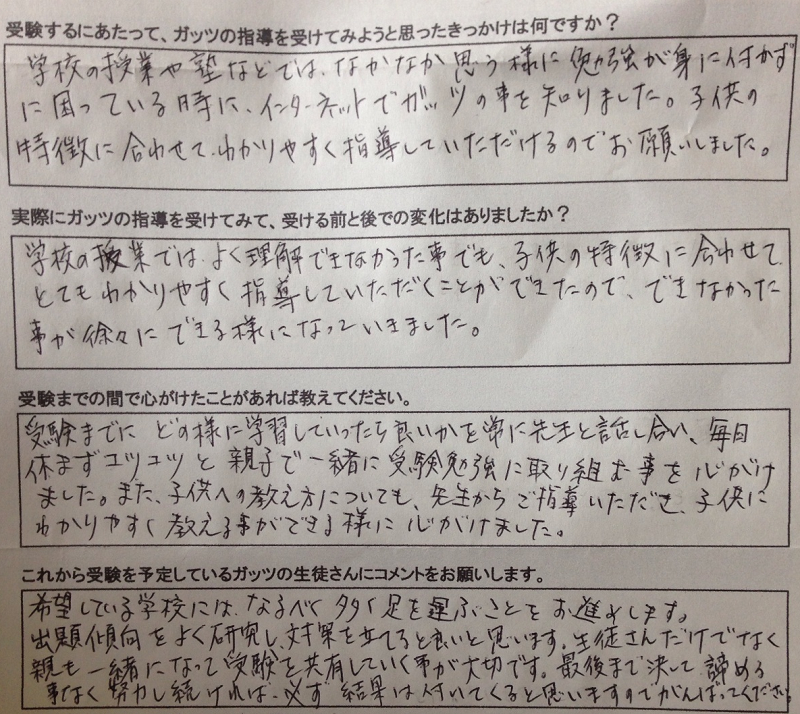 受験するにあたって、ガッツの指導を受けてみようと思ったきっかけは何ですか？
学校の授業や塾などでは、なかなか思う様に勉強が身に付かず
に困っている時に、インターネットでガッツの事を知りました。子供の
特徴に合わせて、わかりやすく指導していただけるのでお願いしました。
実際にガッツの指導を受けてみて、受ける前と後での変化はありましたか？
学校の授業では、よく理解できなかった事でも、子供の特徴に合わせて
とてもわかりやすく指導していただくことができたので、できなかった
事が徐々にできる様になっていきました。
受験までの間で心がけたことがあれば教えてください。
受験までに どの様に学習していったら良いかを常に先生と話し合い、毎日
休まずコツコツと親子で一緒に受験勉強に取り組む事を心がけ
ました。また、子供への教え方についても、先生からご指導いただき、子供に
わかりやすく教える事ができる様に心がけました。
これから受験を予定しているガッツの生徒さんにコメントをお願いします。
希望している学校には、なるべく多く足を運ぶことをお進めします。
出題傾向をよく研究し、対策を立てると良いと思います。生徒さんだけでなく
親も一緒になって受験を共有していく事が大切です。最後まで決して諦める
事なく努力し続ければ、必ず結果は付いてくると思いますのでがんばってください。